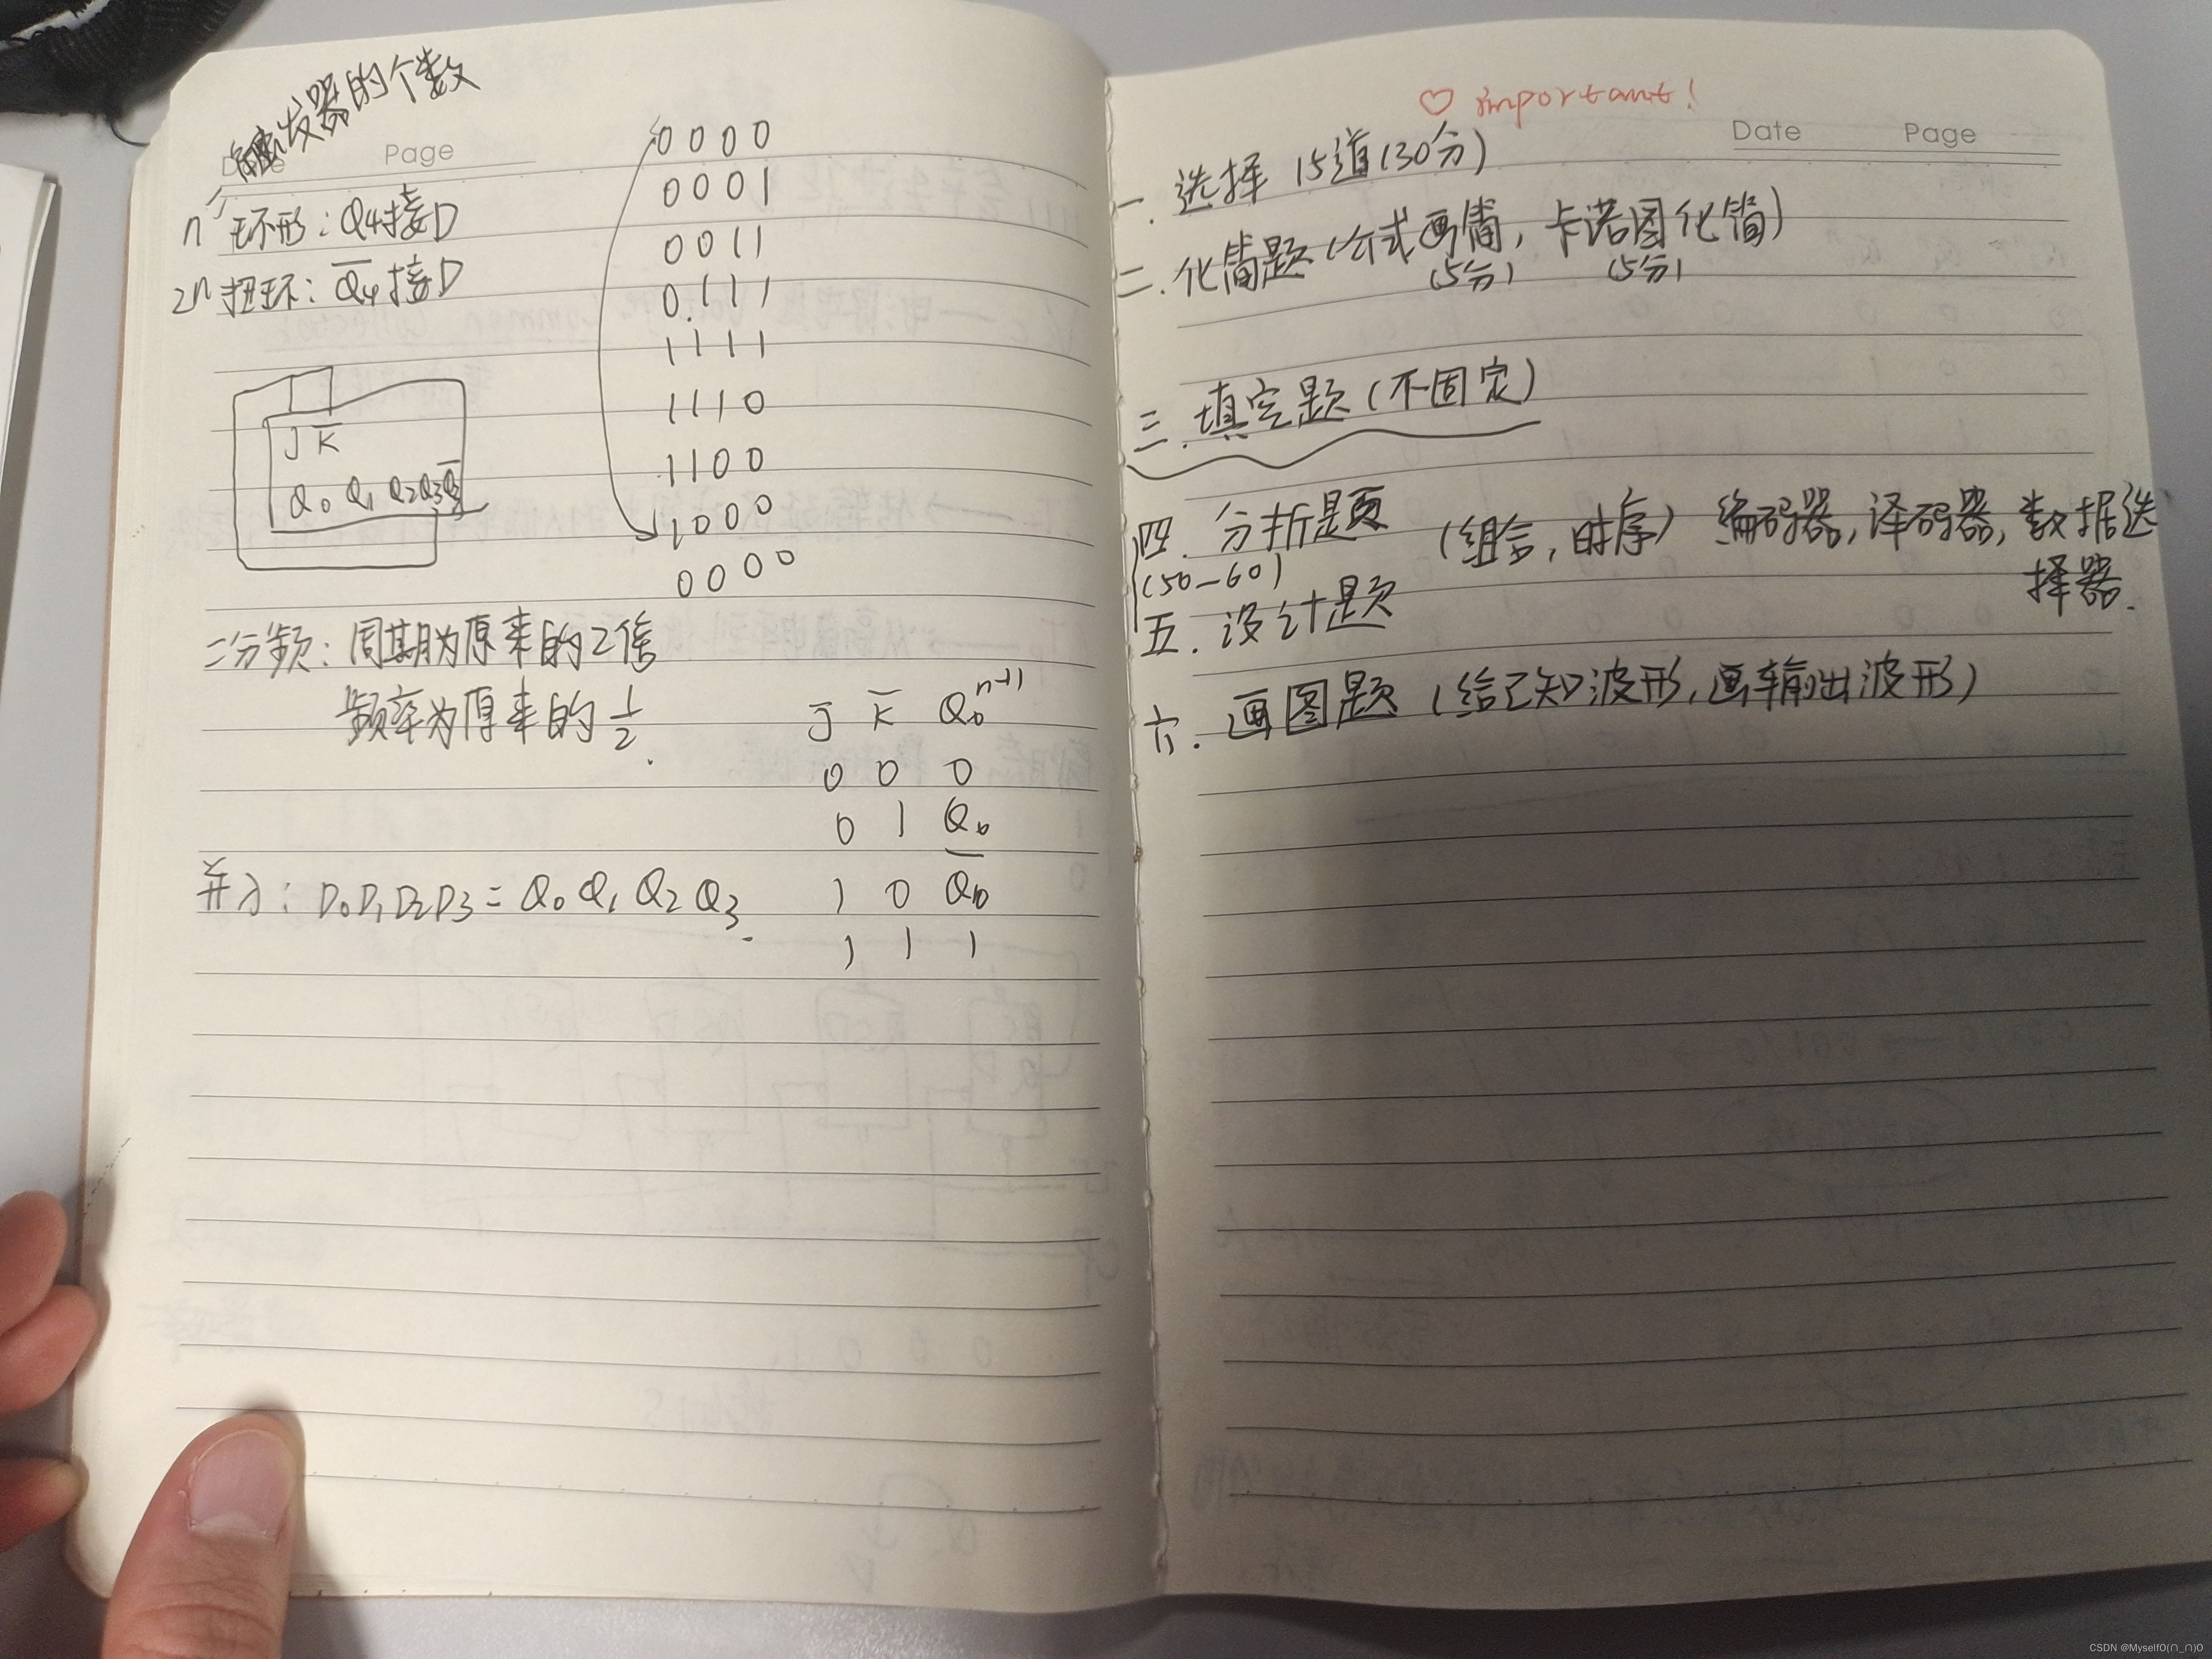 触发器的个数
Page
n 环形：Q4接D
2n 扭环：Q̅4接D
0000
0001
0011
0111
1111
1110
1100
1000
0000
J K̅
Q0 Q1 Q2Q3Q̅3
二分频：周期为原来的2倍
频率为原来的1/2.
J K̅ Q0^n+1
0 0 0
0 1 Q0
1 0 Q̅0
1 1 1
并入：D0D1D2D3=Q0Q1Q2Q3.
♡ important!
Date Page
一.选择 15道(30分)
二.化简题(公式画简，卡诺图化简)
(5分) (5分)
三.填空题(不固定)
四.分析题 (组合，时序) 编码器，译码器，数据选
择器.
(50-60)
五.设计题
六.画图题(给已知波形，画输出波形)
CSDN @MyselfO(∩_∩)O